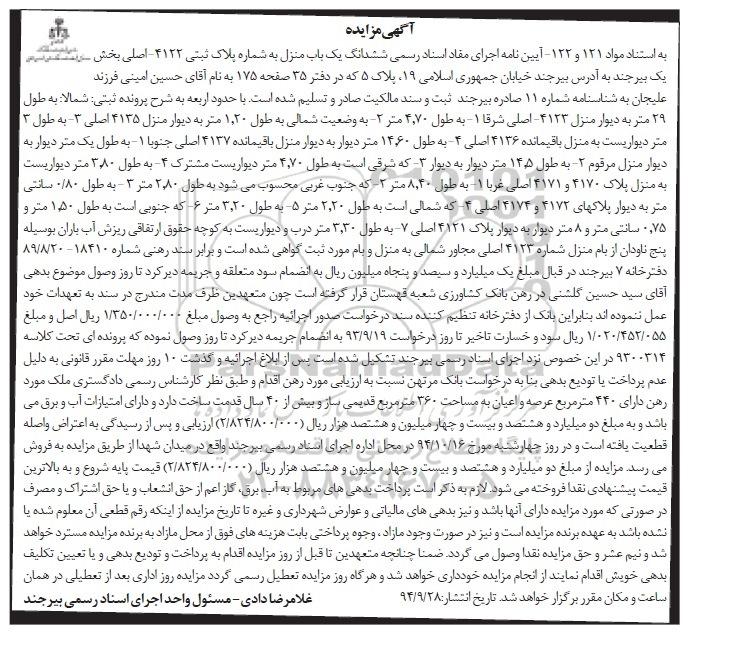 آگهی مزایده
به استناد مواد ۱۲۱ و ۱۲۲- آیین نامه اجرای مفاد اسناد رسمی ششدانگ یک باب منزل به شماره پلاک ثبتی ۴۱۲۲-اصلی بخش
یک بیرجند به آدرس بیرجند خیابان جمهوری اسلامی ۱۹، پلاک ۵ که در دفتر ۳۵ صفحه ۱۷۵ به نام آقای حسین امینی فرزند
علیجان به شناسنامه شماره ۱۱ صادره بیرجند ثبت و سند مالکیت صادر و تسلیم شده است. با حدود اربعه به شرح پرونده ثبتی: شمالا: به طول
۲۹ متر به دیوار منزل ۴۱۲۳- اصلی شرقا ۱- به طول ۴,۷۰ متر ۲- به وضعیت شمالی به طول ۱,۲۰ متر به دیوار منزل ۴۱۳۵ اصلی ۳- به طول ۳
متر دیواریست به منزل باقیمانده ۴۱۳۶ اصلی ۴- به طول ۱۴,۶۰ متر دیوار به دیوار منزل باقیمانده ۴۱۳۷ اصلی جنوبا ۱- به طول یک متر دیوار به
دیوار منزل مرقوم ۲- به طول ۱۴,۵ متر دیوار به دیوار ۳- که شرقی است به طول ۴,۷۰ متر دیواریست مشترک ۴- به طول ۳,۸۰ متر دیواریست
به منزل پلاک ۴۱۷۰ و ۴۱۷۱ اصلی غربا ۱- به طول ۸,۴۰ متر ۲- که جنوب غربی محسوب می شود به طول ۲,۸۰ متر ۳- به طول ۰/۸۰ سانتی
متر به دیوار پلاکهای ۴۱۷۲ و ۴۱۷۴ اصلی ۴- که شمالی است به طول ۲,۲۰ متر ۵- به طول ۳,۲۰ متر ۶- که جنوبی است به طول ۱,۵۰ متر و
۰,۷۵ سانتی متر و ۸ متر دیوار به دیوار پلاک ۴۱۲۱ اصلی ۷- به طول ۳,۳۰ متر درب و دیواریست به کوچه حقوق ارتفاقی ریزش آب باران بوسیله
پنج ناودان از بام منزل شماره ۴۱۲۳ اصلی مجاور شمالی به منزل و بام مورد ثبت گواهی شده است و برابر سند رهنی شماره ۱۸۴۱۰- ۸۹/۸/۲۰
دفترخانه ۷ بیرجند در قبال مبلغ یک میلیارد و سیصد و پنجاه میلیون ریال به انضمام سود متعلقه و جریمه دیرکرد تا روز وصول موضوع بدهی
آقای سید حسین گلشنی در رهن بانک کشاورزی شعبه قهستان قرار گرفته است چون متعهدین ظرف مدت مندرج در سند به تعهدات خود
عمل ننموده اند بنابراین بانک از دفترخانه تنظیم کننده سند درخواست صدور اجرائیه راجع به وصول مبلغ ۱/۳۵۰/۰۰۰/۰۰۰ ریال اصل و مبلغ
۱/۰۲۰/۴۵۲/۰۵۵ ریال سود و خسارت تاخیر تا روز درخواست ۹۳/۹/۱۹ به انضمام جریمه دیرکرد تا روز وصول نموده که پرونده ای تحت کلاسه
۹۳۰۰۳۱۴ در این خصوص نزد اجرای اسناد رسمی بیرجند تشکیل شده است پس از ابلاغ اجرائیه و گذشت ۱۰ روز مهلت مقرر قانونی به دلیل
عدم پرداخت یا تودیع بدهی بنا به درخواست بانک مرتهن نسبت به ارزیابی مورد رهن اقدام و طبق نظر کارشناس رسمی دادگستری ملک مورد
رهن دارای ۴۴۰ مترمربع عرصه و اعیان به مساحت ۳۶۰ مترمربع قدیمی ساز و بیش از ۴۰ سال قدمت ساخت دارد و دارای امتیازات آب و برق می
باشد و به مبلغ دو میلیارد و هشتصد و بیست و چهار میلیون و هشتصد هزار ریال (۲/۸۲۴/۸۰۰/۰۰۰) ارزیابی و پس از رسیدگی به اعتراض واصله
قطعیت یافته است و در روز چهارشنبه مورخ ۹۴/۱۰/۱۶ در محل اداره اجرای اسناد رسمی بیرجند واقع در میدان شهدا از طریق مزایده به فروش
می رسد. مزایده از مبلغ دو میلیارد و هشتصد و بیست و چهار میلیون و هشتصد هزار ریال (۲/۸۲۴/۸۰۰/۰۰۰) قیمت پایه شروع و به بالاترین
قیمت پیشنهادی نقدا فروخته می شود. لازم به ذکر است پرداخت بدهی های مربوط به آب، برق، گاز اعم از حق انشعاب و یا حق اشتراک و مصرف
در صورتی که مورد مزایده دارای آنها باشد و نیز بدهی های مالیاتی و عوارض شهرداری و غیره تا تاریخ مزایده از اینکه رقم قطعی آن معلوم شده یا
نشده باشد به عهده برنده مزایده است و نیز در صورت وجود مازاد، وجوه پرداختی بابت هزینه های فوق از محل مازاد به برنده مزایده مسترد خواهد
شد و نیم عشر و حق مزایده نقدا وصول می گردد. ضمنا چنانچه متعهدین تا قبل از روز مزایده اقدام به پرداخت و تودیع بدهی و یا تعیین تکلیف
بدهی خویش اقدام نمایند از انجام مزایده خودداری خواهد شد و هرگاه روز مزایده تعطیل رسمی گردد مزایده روز اداری بعد از تعطیلی در همان
ساعت و مکان مقرر برگزار خواهد شد. تاریخ انتشار: ۹۴/۹/۲۸ غلامرضا دادی- مسئول واحد اجرای اسناد رسمی بیرجند